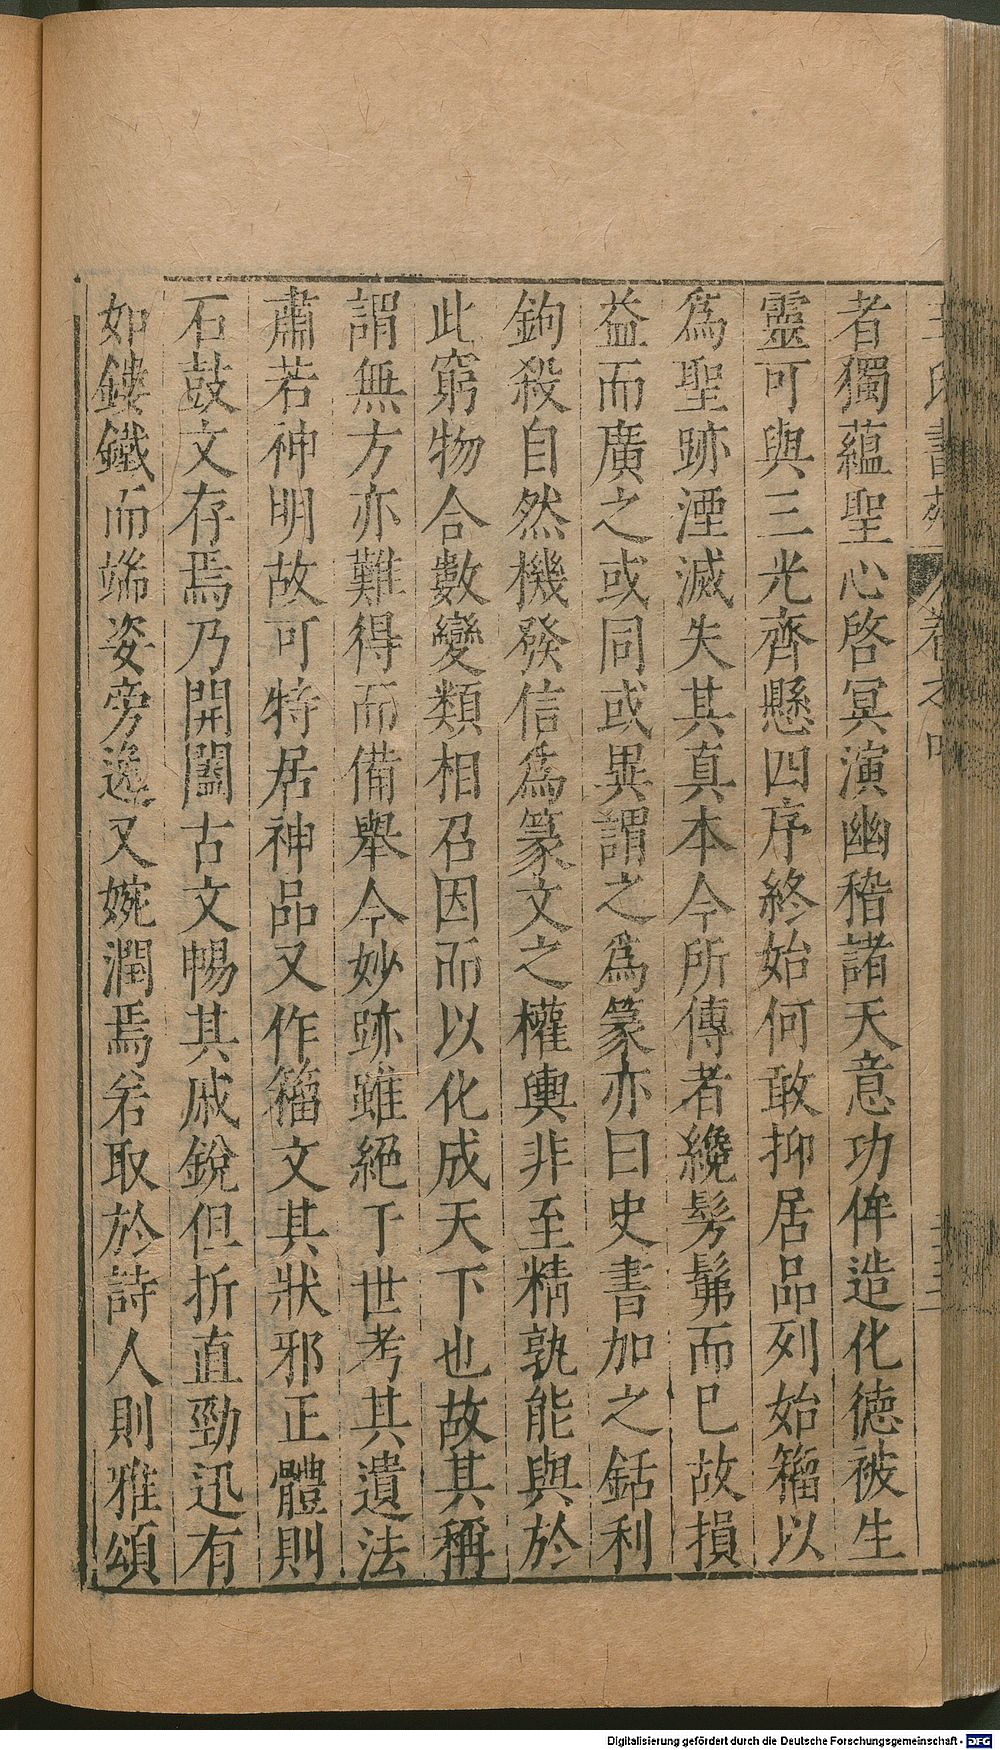 王氏書苑 卷之四
者獨蘊聖心啓冥演幽稽諸天意功侔造化德被生
靈可與三光齊懸四序終始何敢抑居品列始籀以
爲聖跡湮滅失其真本今所傳者纔髣髴而已故損
益而廣之或同或異謂之爲篆亦曰史書加之銛利
鉤殺自然機發信爲篆文之權輿非至精孰能與於
此窮物合數變類相召因而以化成天下也故其稱
謂無方亦難得而備舉今妙跡雖絕于世考其遺法
肅若神明故可特居神品又作籀文其狀邪正體則
石鼓文存焉乃開闔古文暢其戚銳但折直勁迅有
如鏤鐵而端姿旁逸又婉潤焉若取於詩人則雅頌
Digitalisierung gefördert durch die Deutsche Forschungsgemeinschaft - DFG